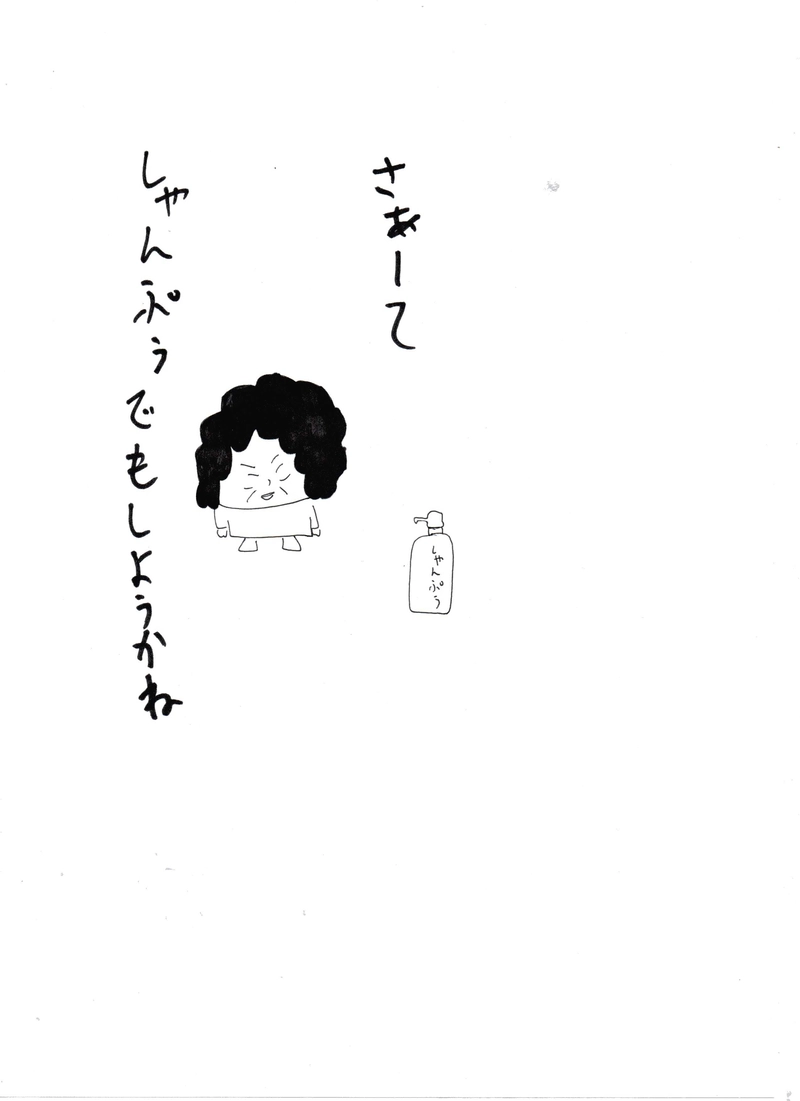 さあーて
しゃんぷぅでもしようかね
しゃんぷう